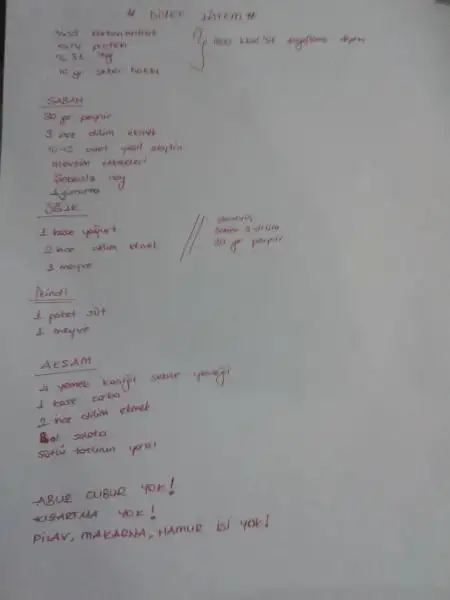 karbonhidrat
protein
yağ
10 gr şeker hakkı
SABAH
30 gr peynir
3 ince dilim ekmek
10-12 adet yeşil zeytin
mevsim sebzeleri
Şekersiz çay
1 yumurta
ÖĞLE
1 kase yoğurt
2 ince dilim ekmek
1 meyve
3 dilim
30 gr peynir
İkindi
1 paket süt
1 meyve
AKŞAM
4 yemek kaşığı sebze yemeği
1 kase çorba
2 ince dilim ekmek
Bol salata
ABUR CUBUR YOK!
KIZARTMA YOK!
PİLAV, MAKARNA, HAMUR İŞİ YOK!